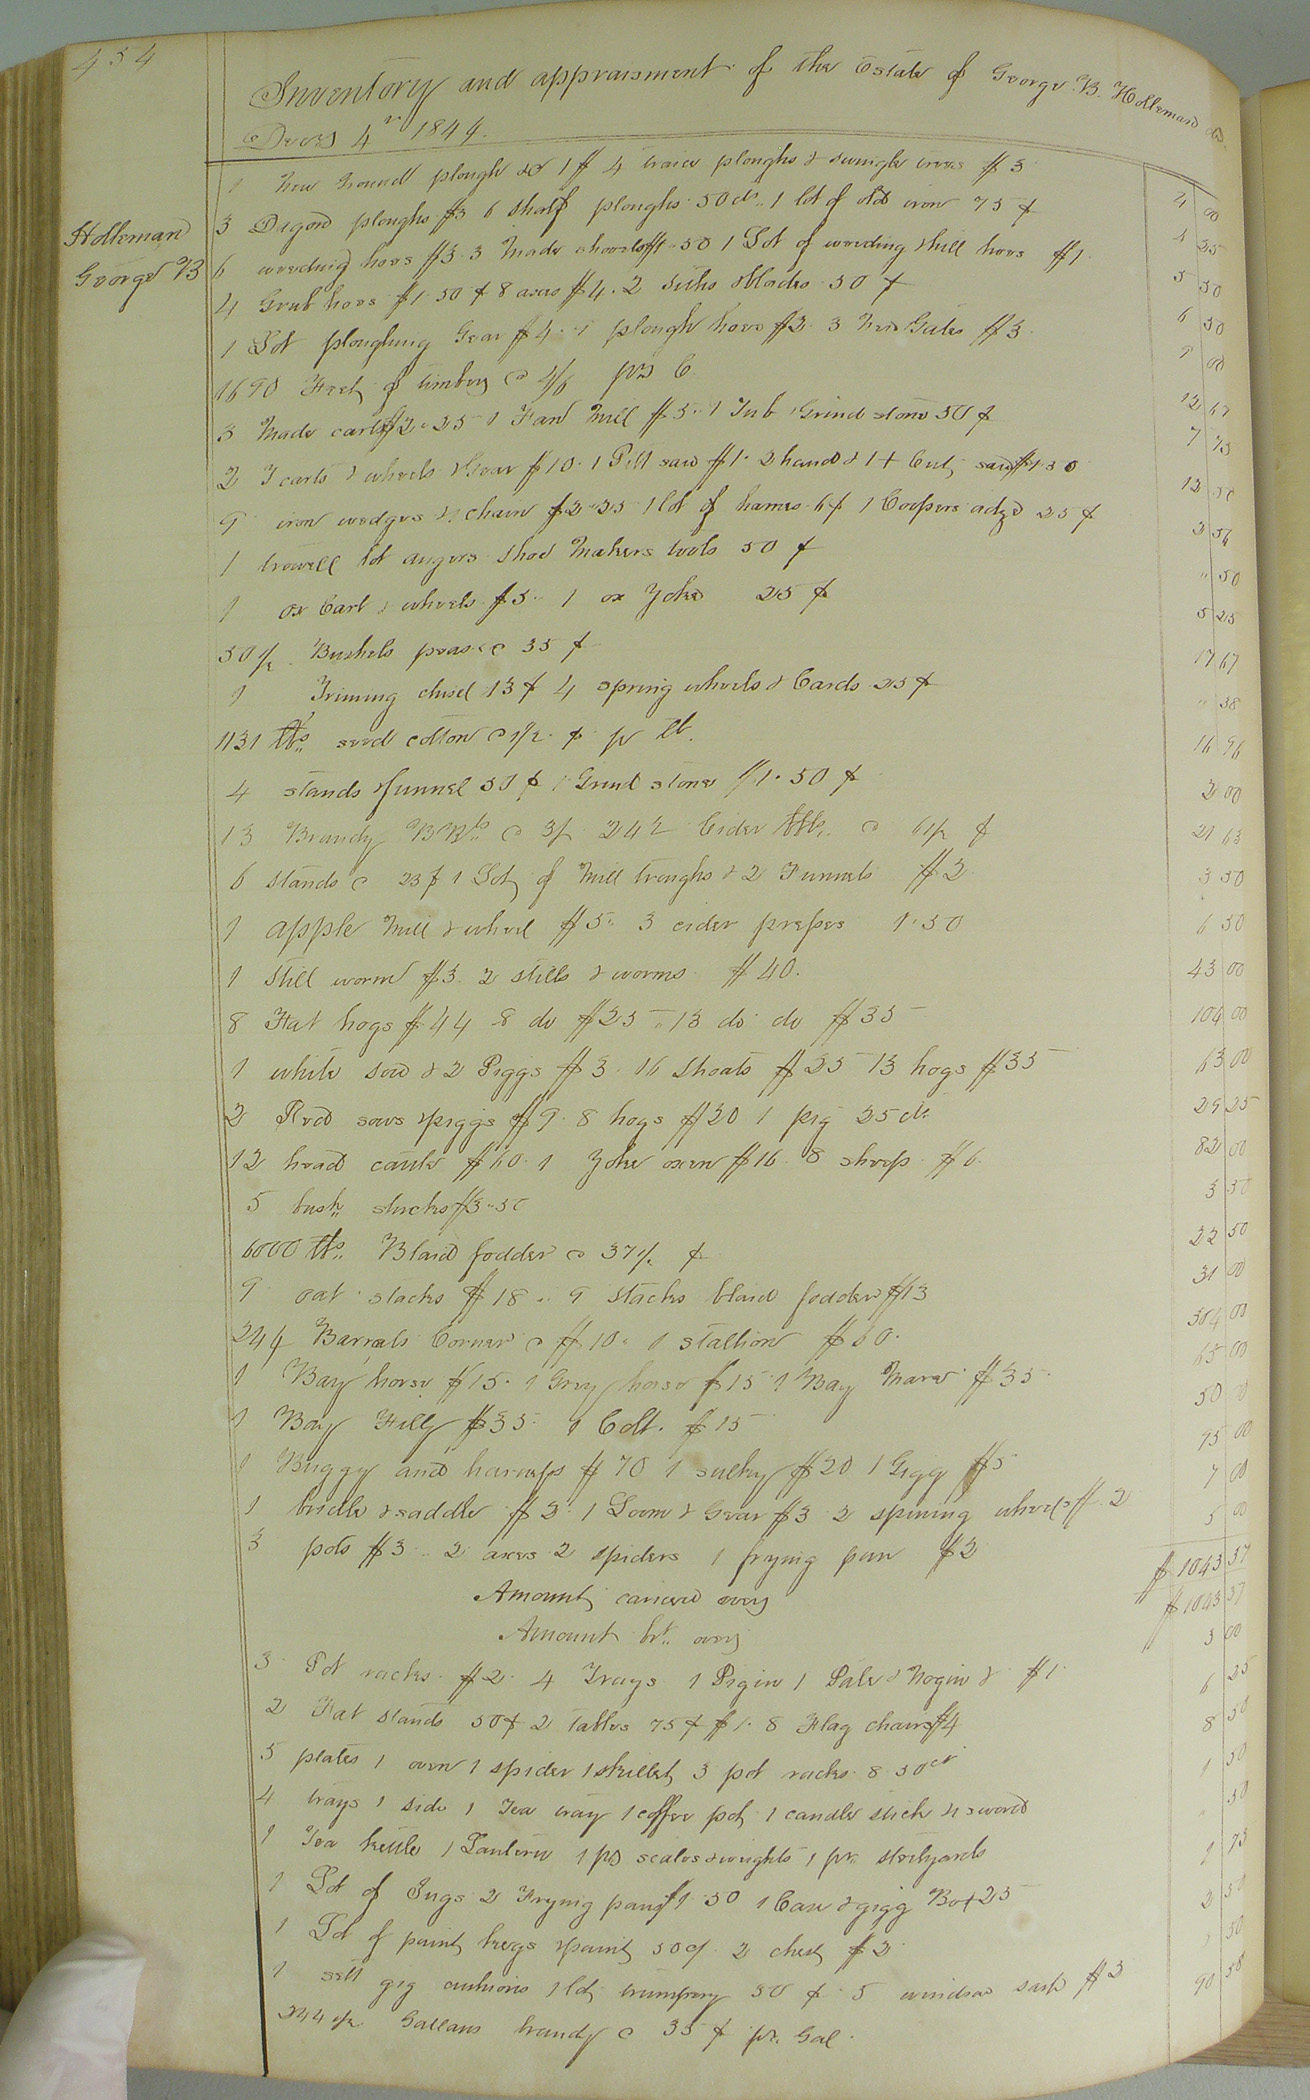 454
Inventory and appraisment of the Estate of George B. Holleman dd
Decr 4th 1844.
Holleman
George B
1 New Ground plough &c 1 $ 4 trace ploughs & swingle trees $3 4 00
3 Dagon ploughs $3 6 Shalf ploughs 50 cts 1 lot of old iron 75 ¢ 4 25
6 weeding hoes $3 3 Made shovels $1.50 1 Lot of weeding & hill hoes $1 5 50
4 Grub hoes $1.50 ¢ 8 axes $4. 2 Siths & blades 50 ¢ 6 50
1 Lot ploughing Gear $4. 1 plough hoes $2 3 New Gates $3 9 00
1690 Feet of timber @ 4/6 pr C 12 67
3 Made carts $2.25 1 Fan Mill $5. 1 Tub & Grind stone 50 ¢ 7 75
2 T carts & wheels & Gear $10. 1 Pitt saw $1. 2 hand & 1 + Cut saw $1.50 12 50
9 iron wedges & chain $2.25 1 lot of hames 6 ¢ 1 Coopers adze 25 ¢ 2 56
1 trowell lot augers Shoe Makers tools 50 ¢ " 50
1 ox Cart & wheels $5. 1 ox Yoke 25 ¢ 5 25
50 1/2 Bushels peas @ 35 ¢ 17 67
1 Triming chisel 13 ¢ 4 spring wheels & Cards 25 ¢ " 38
1131 lbs seed cotton @ 1 1/2 ¢ pr lb. 16 96
4 stands & funnel 50 ¢ 1 Grind stone $1.50 ¢ 2 00
13 Brandy BBls @ 3/ 242 Cider bbls @ 6 1/2 ¢ 21 63
6 stands @ 25 ¢ 1 Lot of Mill troughs & 2 Funnels $2 3 50
1 apple Mill & wheel $5. 3 cider presses 1.50 6 50
1 Still worm $3 2 stills & worms $40. 43 00
8 Fat hogs $44 8 do $25 13 do do $35 104 00
1 white sow & 2 Piggs $3. 16 Shoats $25 13 hogs $35 63 00
2 Red sows & piggs $9. 8 hogs $20 1 pig 25 cts 29 25
12 head cattle $60. 1 Yoke oxen $16. 8 sheep $6. 82 00
5 bush stacks $3.50 3 50
6000 lbs Blaid fodder @ 37 1/2 ¢ 22 50
9 oat stacks $18. 9 Stacks blaid fodder $13 31 00
244 Barrels Corn @ $10. 1 stallion $60. 304 00
1 Bay horse $15. 1 Grey horse $15 1 Bay Mare $35. 65 00
1 Bay Filly $35. 1 Colt. $15 50 00
1 Buggy and harness $70 1 sulky $20 1 Gigg $5 95 00
1 bridle & saddle $2. 1 Loom & Gear $3 2 spinning wheels $2 7 00
3 pots $3. 2 axes 2 spiders 1 frying pan $2 5 00
Amount carried over $1043 37
Amount brt. over $1043 37
3 Pot racks $2. 4 Trays 1 Pigin 1 Pale & Nogin & $1. 3 00
2 Fat Stands 50 ¢ 2 tables 75 ¢ $1. 8 Flag chairs $4 6 25
5 plates 1 oven 1 spider 1 skillet 3 pot racks 8.50 ct 8 50
4 trays 1 side 1 Tea tray 1 coffee pot 1 candle stick & sword 1 50
1 Tea kettle 1 Lantern 1 pr scales & weights 1 pr. stilyards " 50
1 Lot of Jugs 2 Frying pans $1.50 1 Case & gigg Box 25 1 75
1 Lot of paint kegs & paint 50 ¢. 2 chest $2 2 50
1 sett gig cushions 1 lot trumpery 50 ¢ 5 window sash $3 50
244 1/2 Gallans brandy @ 35 ¢ pr. Gal. 90 58